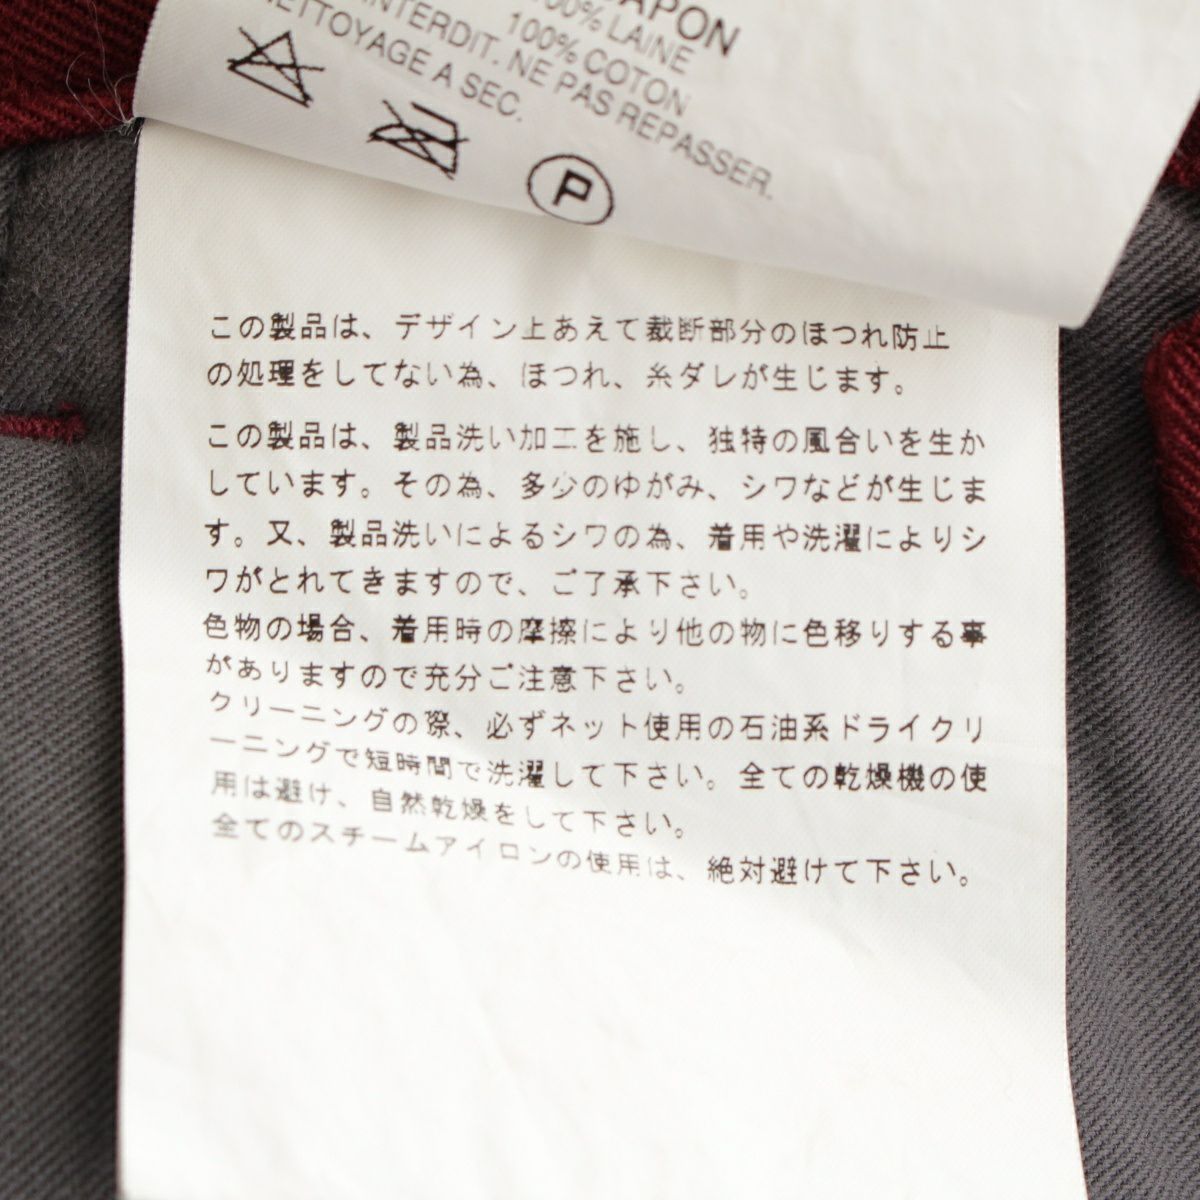 JAPON
100% LAINE
100% COTON
INTERDIT. NE PAS REPASSER.
NETTOYAGE A SEC.
P
この製品は、デザイン上あえて裁断部分のほつれ防止
の処理をしてない為、ほつれ、糸ダレが生じます。
この製品は、製品洗い加工を施し、独特の風合いを生か
しています。その為、多少のゆがみ、シワなどが生じま
す。又、製品洗いによるシワの為、着用や洗濯によりシ
ワがとれてきますので、ご了承下さい。
色物の場合、着用時の摩擦により他の物に色移りする事
がありますので充分ご注意下さい。
クリーニングの際、必ずネット使用の石油系ドライクリ
ーニングで短時間で洗濯して下さい。全ての乾燥機の使
用は避け、自然乾燥をして下さい。
全てのスチームアイロンの使用は、絶対避けて下さい。